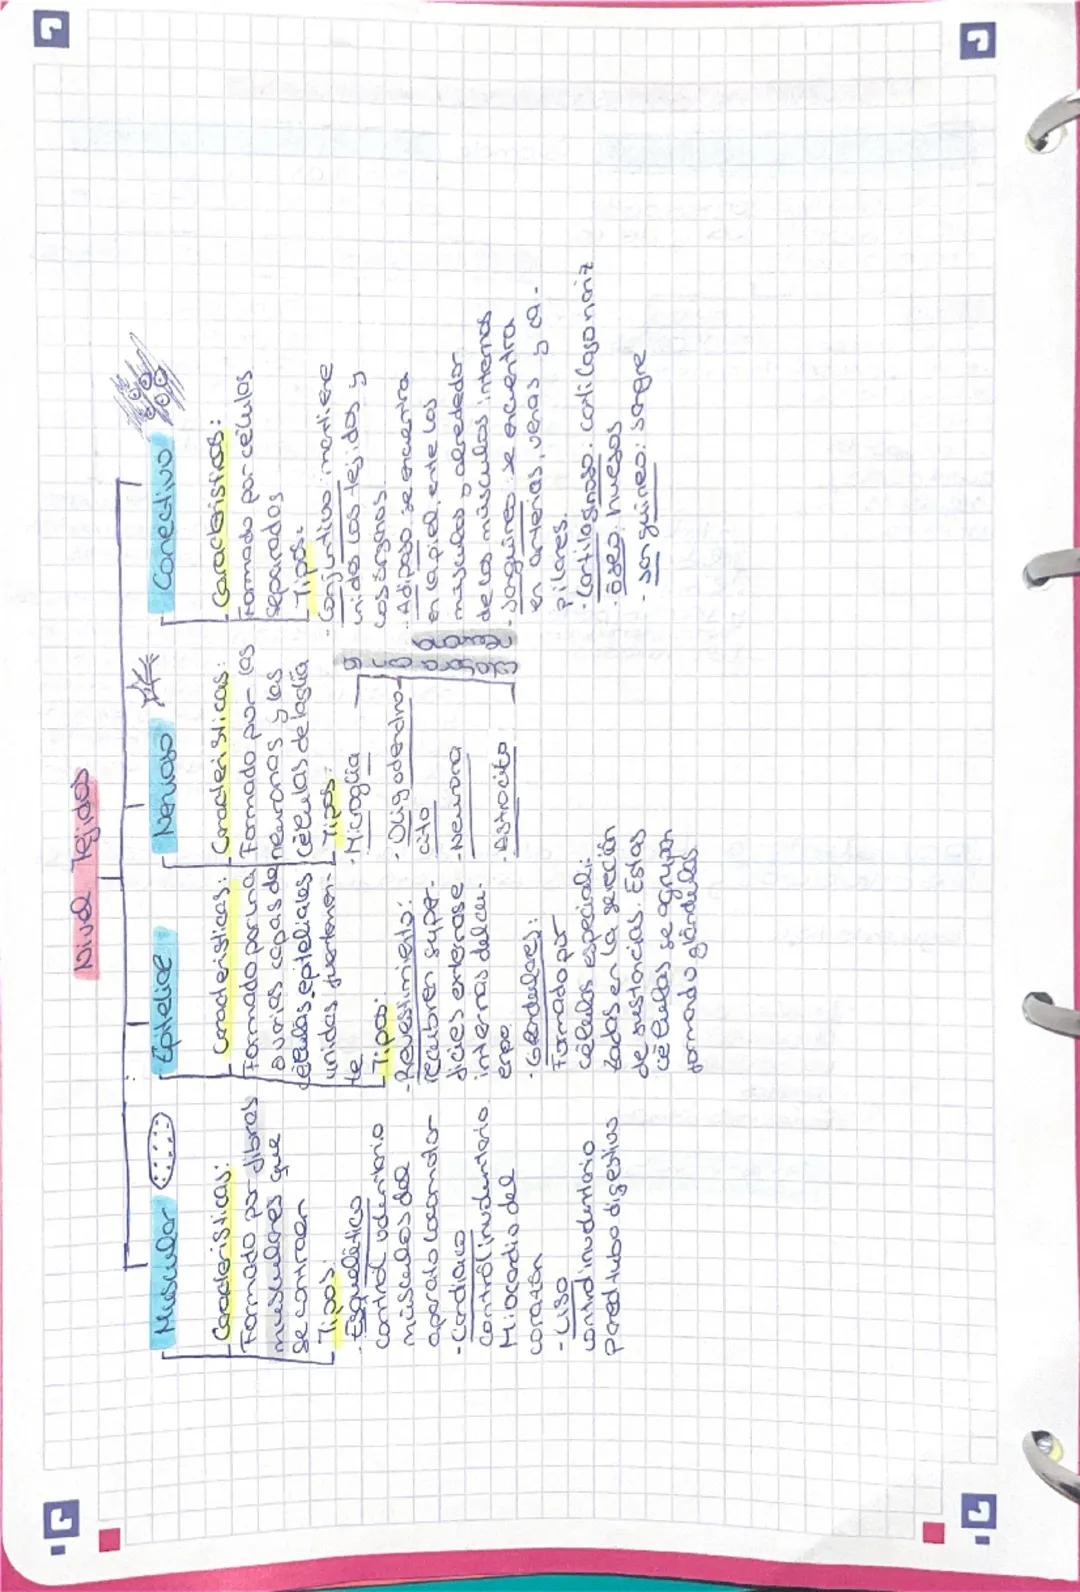 Nivel Tejidos
Muscular
Características:
Formado por fibras
musculares que
se contraen
Tipos:
- Esquelético
control voluntario
músculos del
aparato locomotor
- Cardíaco
Control involuntario
Miocardio del
corazón
- Liso
control involuntario
pared tubo digestivo
Epitelial
Características:
Formado por una
o varias capas de
células epiteliales
unidas fuertemen-
te
Tipos:
- Revestimiento:
recubren super-
ficies externas e
internas del cu-
erpo
- Glandulares:
Formado por
células especiali-
zadas en la sereción
de sustancias. Estas
células se agrupan
formando glándulas
Nervioso
Características:
Formado por las
neuronas y las
células de la glía
Tipos:
- Microglia
- Oligodendro-
cito
- Neurona
- Astrocito
neurona
Conectivo
Características:
Formado por células
separadas
Tipos:
- Conjuntivo: mantiene
unidos los tejidos y
los órganos
- Adiposo: se encuentra
en la piel, entre los
músculos y alrededor
de los músculos internos
- Sanguíneo: se encuentra
en arterias, venas y ca-
pilares.
- Cartilaginoso: nariz
- óseo: huesos
- sanguíneo: sangre